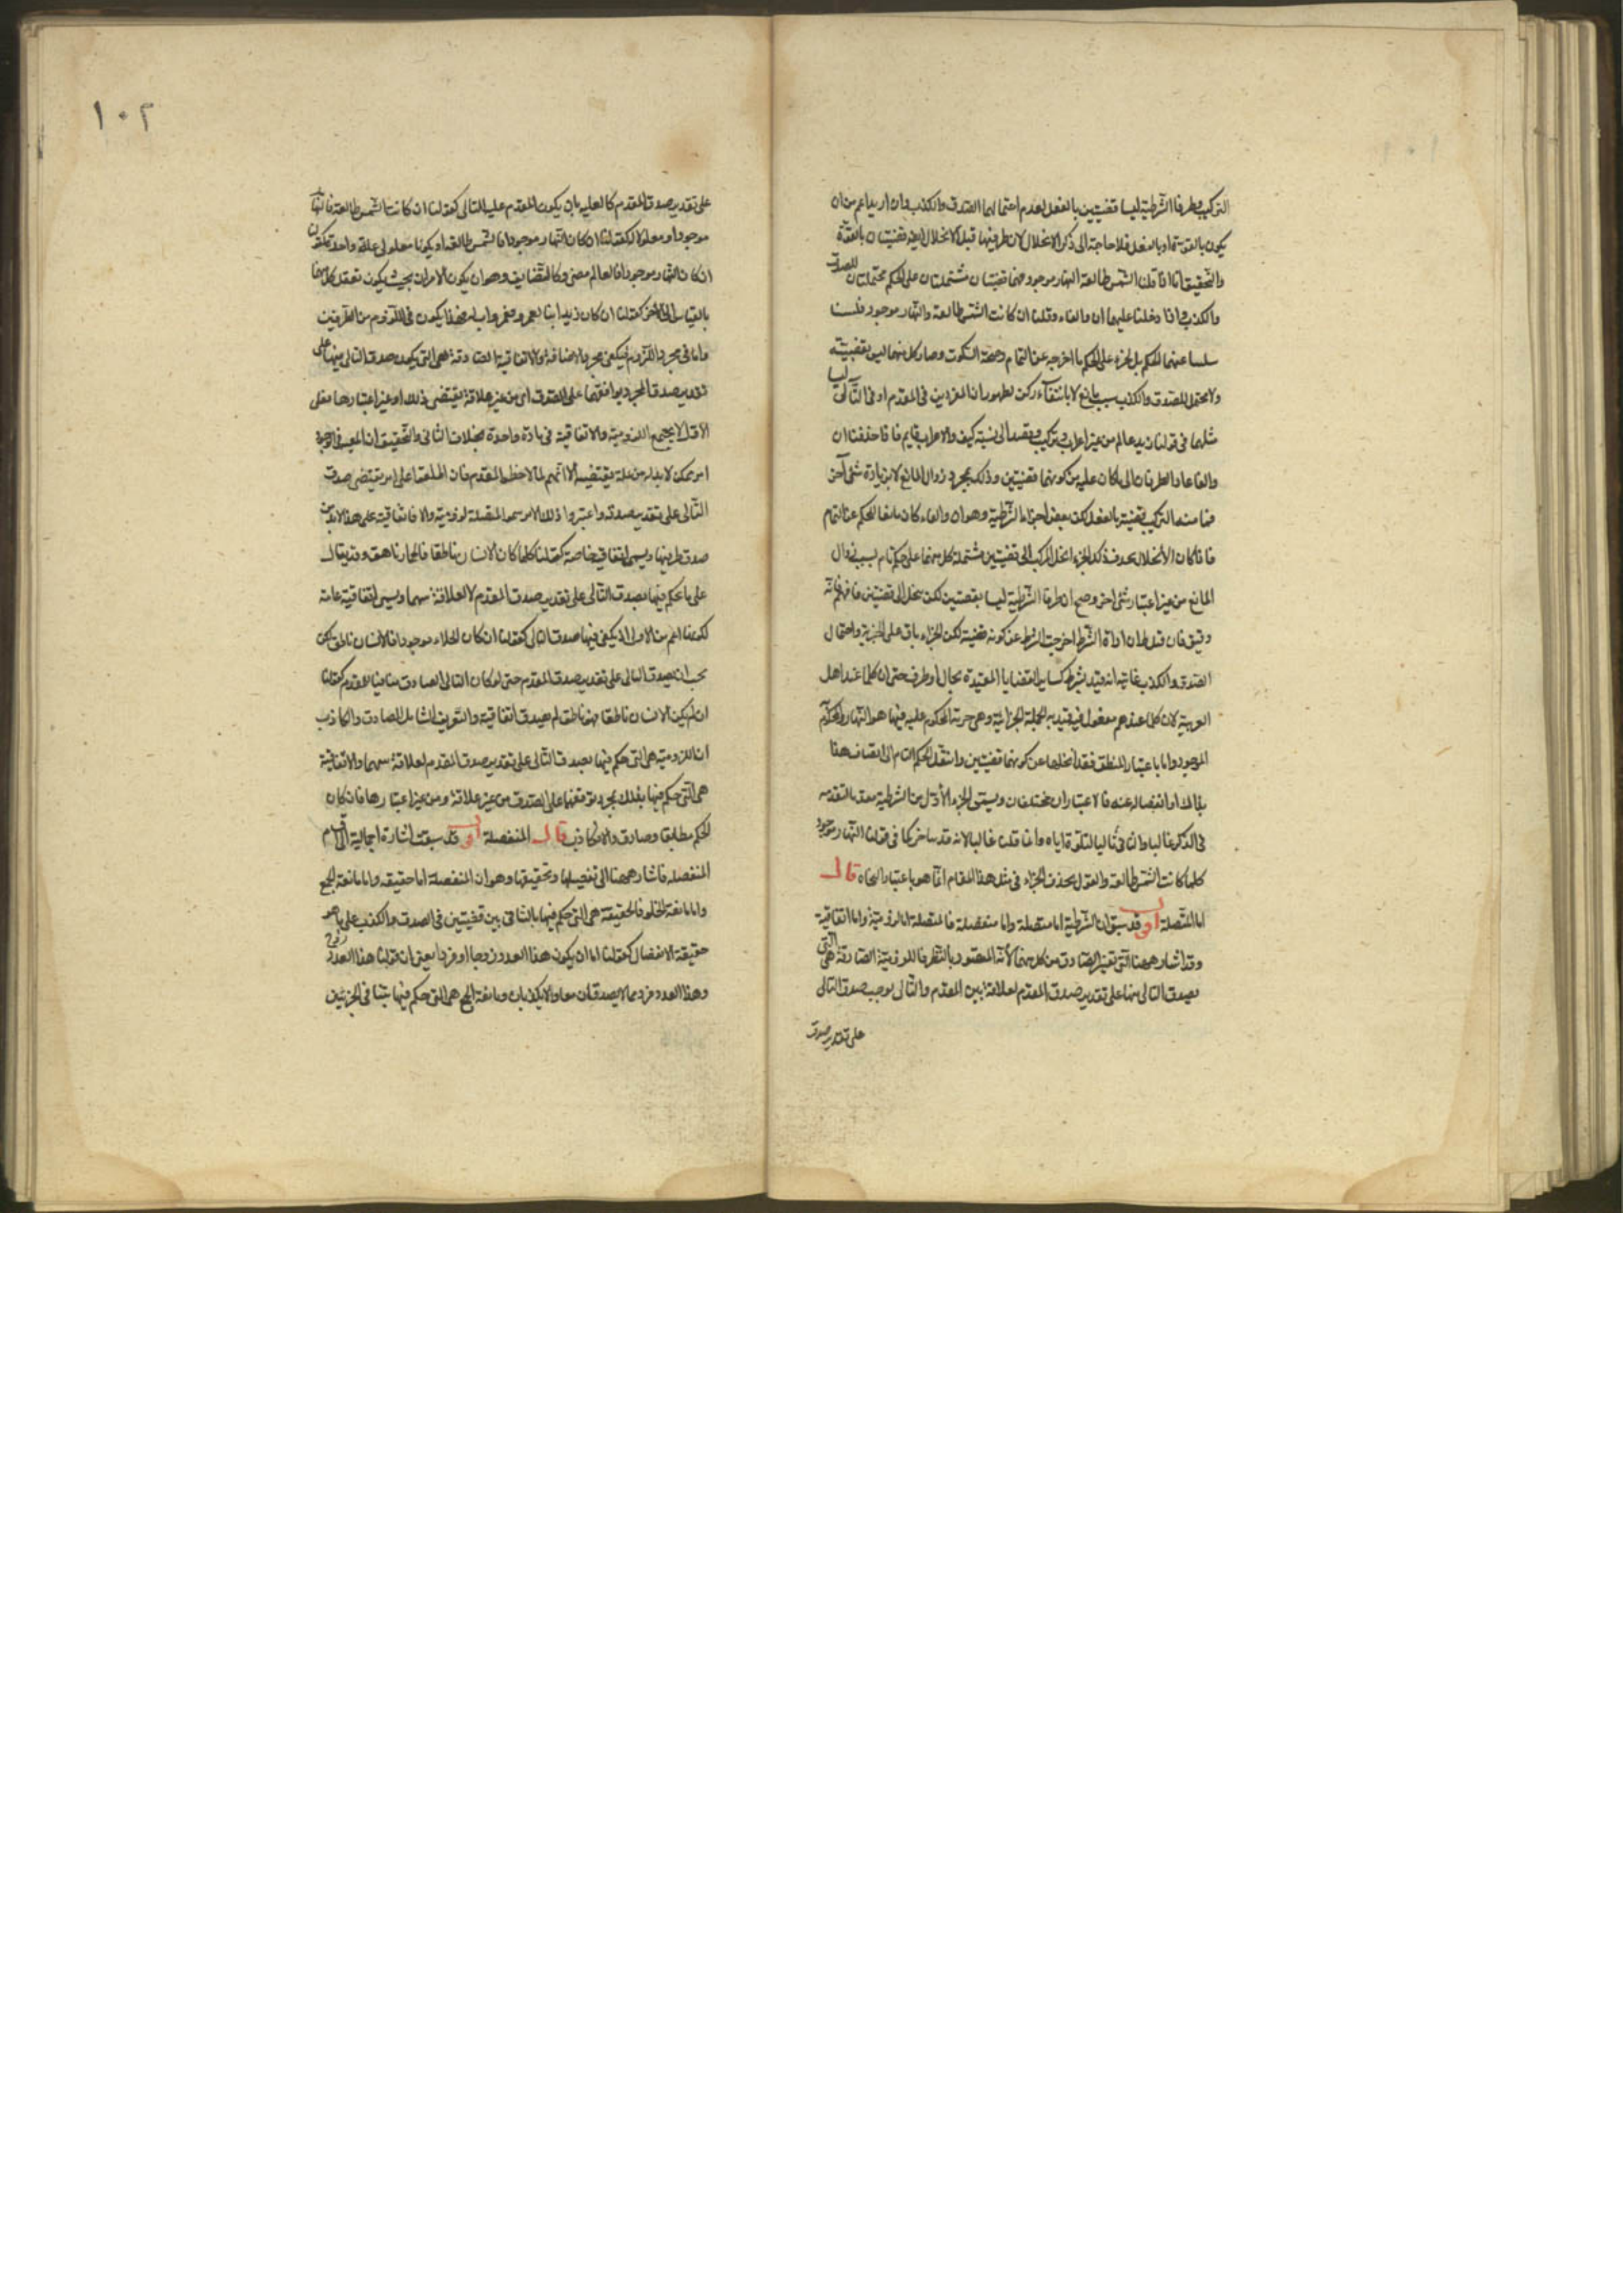 التركيب فطرفا الشرطية ليسا قضيتين بالفعل لعدم احتمالهما الصدق والكذب وان اريد اعم من ان
يكون بالقوة او بالفعل فلا حاجة الى ذكر الانحلال لان طرفيها قبل الانحلال ايضا قضيتان بالقوة
والتحقيق انا اذا قلنا الشمس طالعة النهار موجود فهما قضيتان مشتملتان على الحكم محتملتان للصدق
والكذب فاذا دخلنا عليهما ان والفاء وقلنا ان كانت الشمس طالعة فالنهار موجود فلسنا
سلبنا عنهما الحكم بل لجزء على الحكم ما اخرجه عن التمام وصحة السكوت وصار كل منهما ليس بقضية
ولا محتمل للصدق والكذب بسبب مانع لا بانتفاء ركن لظهور ان المفردين في المقدم او في التالي ليسا
مثلهما في قولنا زيد عالم من غير اعراب في تركيب وقصد الى نسبة كيف والاعراب قايم فاذا حذفنا ان
والفا عاد الطرفان الى ما كان عليه من كونهما قضيتين وذلك بمجرد زوال المانع لا بزيادة شئ آخر
فما منه التركيب قضية بالفعل لكن بعض اجزاء الشرطية وهو ان والفاء كان مانعا الحكم عن التمام
فاذا كان الانحلال بحذف ذلك الجزء انحل المركب الى قضيتين مشتملة كل منهما على حكم تام بسبب زوال
المانع من غير اعتبار شئ اخر وصح ان طرفا الشرطية ليسا بقضيتين لكن ينحل الى قضيتين فافهم فانه
دقيق فان قيل ان اداة الشرط اخرجت الشرط عن كونه قضية لكن الجزاء باق على الخبرية واحتمال
الصدق والكذب غايته انه قيد بشرط كساير القضايا المقيدة بحال او ظرف حتى ان كلما عند اهل
العربية لان كلما عندهم مفعول فيه قيد به الجملة الجزائية وهى خبرية المحكوم عليه فيها هو النهار والمحكوم به
الموجود واما باعتبار المنطق فقد اخلها عن كونهما قضيتين وانتقل الحكم التام الى اتصاف هذا
بذاك او انفصاله عنه فالاعتباران مختلفان ويسمى الجزء الاول من الشرطية مقدما لتقدمه
في الذكر غالبا والثاني تاليا لتلوه اياه وانما قلنا غالبا لانه قد يتاخر كما في قولنا النهار موجود
كلما كانت الشمس طالعة والقول بحذف الجزاء في مثل هذا المقام انما هو باعتبار النحاة قال
اما المتصلة اقول قد سبق ان الشرطية اما متصلة واما منفصلة فالمتصلة اما لزومية واما اتفاقية
وقد اشار ههنا الى تعريف الصادق من كل منهما لانه المقصود بالنظر فاللزومية الصادقة هى التى
يصدق التالي منها على تقدير صدق المقدم لعلاقة بين المقدم والتالي توجب صدق التالي
على تقدير صدق
١٠٢
على تقدير صدق المقدم كالعلية بان يكون المقدم علة للتالى كقولنا ان كانت الشمس طالعة فالنهار
موجود او معلولا كقولنا ان كان النهار موجودا فالشمس طالعة او يكونا معلولى علة واحدة كقولنا
ان كان النهار موجودا فالعالم مضئ وكالتضايف وهو ان يكون الامران بحيث يكون تعقل كل منهما
بالقياس الى الاخر كقولنا ان كان زيد ابنا لعمرو فعمرو اب له وهذا يكون في اللزوم من الطرفين
واما في مجرد اللزوم فيكفى مجرد الاضافة والاتفاقية الصادقة هى التى يكون صدق التالى منها على
تقدير صدق المجرد بتوافقهما على الصدق اى من غير علاقة يقتضى ذلك او غير اعتبارها فعلى
الاول لا يجتمع اللزومية والاتفاقية في مادة واحدة بخلاف الثانى والتحقيق ان المعية في الوجود
امر ممكن لا بد له من علة يقتضيه الا انهم لما لاحظوا المقدم فان اطلعوا على امر يقتضى صدق
التالى على تقدير صدقه واعتبروا ذلك الامر سموا المتصلة لزومية والا فاتفاقية على هذا لا بد من
صدق طرفيها ويسمى اتفاقية خاصة كقولنا كلما كان الانسان ناطقا فالحمار ناهق وقد يقال
على ما يحكم فيها بصدق التالى على تقدير صدق المقدم لا لعلاقة بينهما ويسمى اتفاقية عامة
لكونها اعم من الاولى اذ يكفى فيها صدق التالى كقولنا ان كان الخلاء موجودا فالانسان ناطق لكن
يجب ان يصدق التالى على تقدير صدق المقدم حتى لو كان التالى الصادق منافيا للمقدم كقولنا
ان لم يكن الانسان ناطقا فهو ناطق لم يصدق اتفاقية والتعريف الشامل للصادق والكاذب
ان اللزومية هى التى حكم فيها بصدق التالى على تقدير صدق المقدم لعلاقة بينهما والاتفاقية
هى التى حكم فيها بذلك بمجرد توافقهما على الصدق من غير علاقة ومن غير اعتبارها فان كان
الحكم مطابقا فصادق والا فكاذب قال المنفصلة اقول قد سبقت اشارة اجمالية الى اقسام
المنفصلة فاشار ههنا الى تفصيلها وتحقيقها وهو ان المنفصلة اما حقيقية واما مانعة الجمع
واما مانعة الخلو فالحقيقية هى التى حكم فيها بالتنافى بين قضيتين في الصدق والكذب على ما هو
حقيقة الانفصال كقولنا اما ان يكون هذا العدد زوجا او فردا يعنى ان قولنا هذا العدد زوج
وهذا العدد فرد مما لا يصدقان معا ولا يكذبان ومانعة الجمع هى التى حكم فيها بتنافى الجزئين